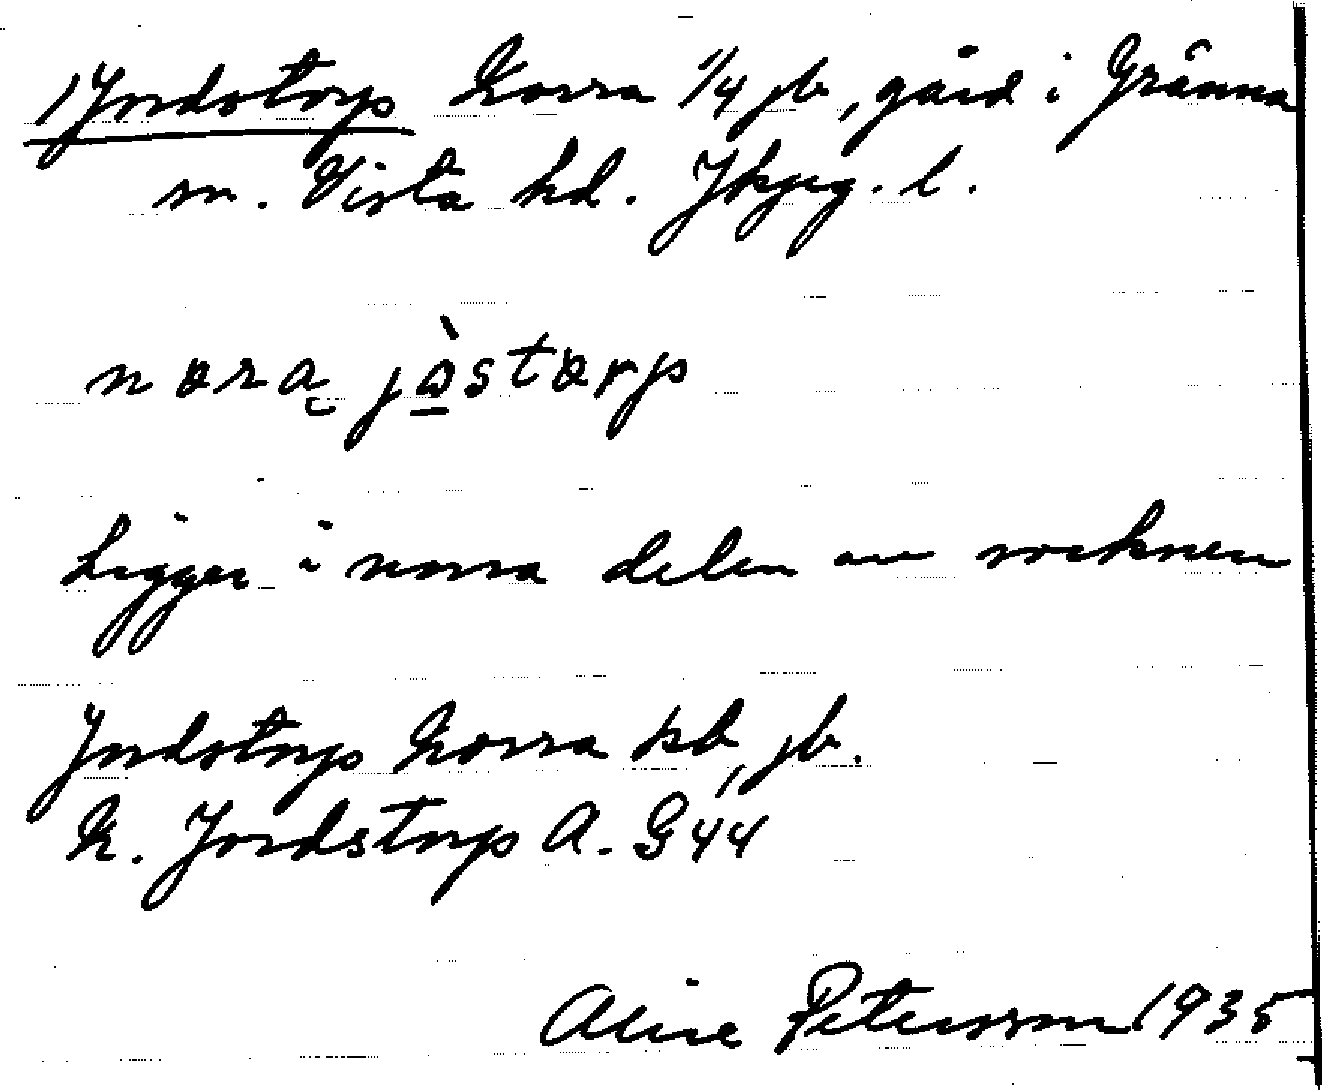 1 Jordstorp Norra 1/4 jb, gård i Gränna
sn. Vista hd. Jkpg. l.
nora jòstorp
Ligger i norra delen av socknen
Jordstorp Norra kb, jb.
N. Jordstorp A. G 44
Alice Petersson 1935